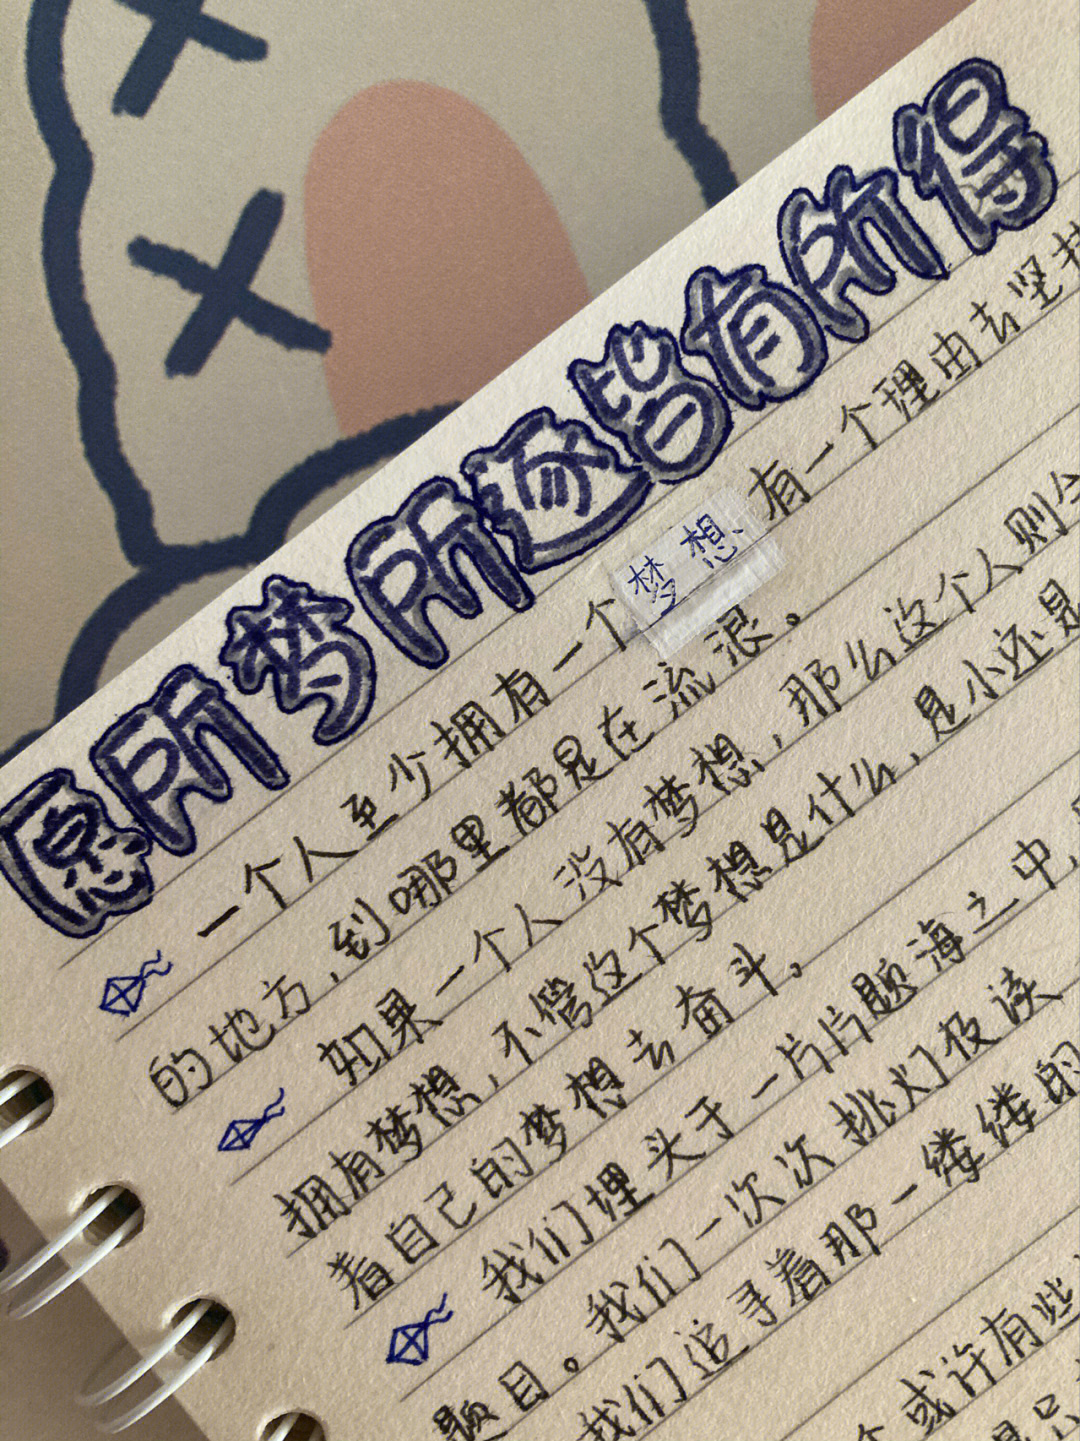 愿所梦所逐皆有所得
一个人至少拥有一个梦想、有一个理由去坚
的地方,到哪里都是在流浪。
如果一个人没有梦想,那么这个人则
拥有梦想,不管这个梦想是什么,是小还是
着自己的梦想去奋斗,
我们埋头于一片片题海之中,
题目。我们一次次挑灯极读
我们追寻着那一缕缕的
或许有些
是只